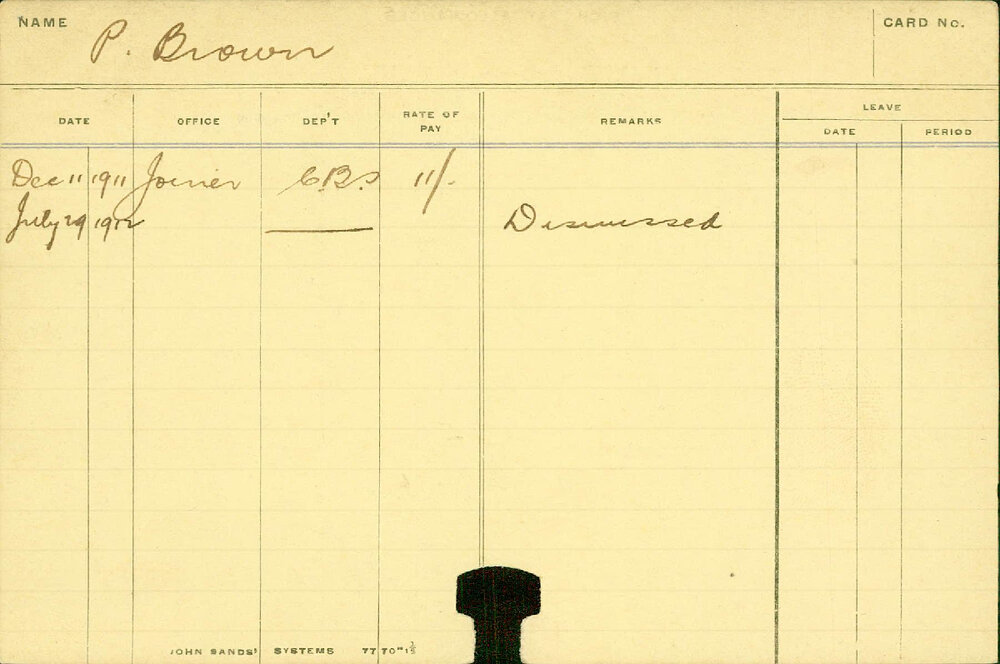 NAME P. Brown CARD No.
DATE OFFICE DEP'T RATE OF PAY REMARKS LEAVE
DATE PERIOD
Dec 11 1911 Joiner C.B.S 11/-
July 29 1912 Dismissed
JOHN SANDS' SYSTEMS 7770"